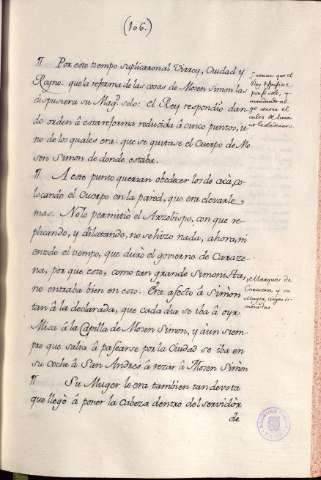 (106.)
¶ Por este tiempo suplicaron al Virrey, Ciudad y
Reyno que la reforma de las cosas de Mosen Simon las
dispusiera su Magd. solo: el Rey respondió dan
do orden à esta reforma reducida à cinco puntos, u
no de los quales era: que se quitase el Cuerpo de Mo
sen Simon de donde estaba.
¶ A este punto querian obedecer los de acà, co
locando el Cuerpo en la pared, que era elevarle
mas. No lo permitió el Arzobispo, con que re
plicando, y dilatando, no se hizo nada, ahora, ni
en todo el tiempo, que duró el govierno de Caraze
na, por que esta, como tan grande Simonista,
no entraba bien en esto. Era afecto à Simòn
tan à la declarada, que cada dia se iba à oyr
Misa à la Capilla de Mosen Simon, y aun siem
pre que salia à pasearse por la Ciudad se iba en
su coche à San Andres à rezar à Mosen Simòn
¶ Su Muger le era tambien tan devota
que llegò à poner la Cabeza dentro del servidòr
de
el Marques de
Caracena, y su
Muger, eran Si-
monistas